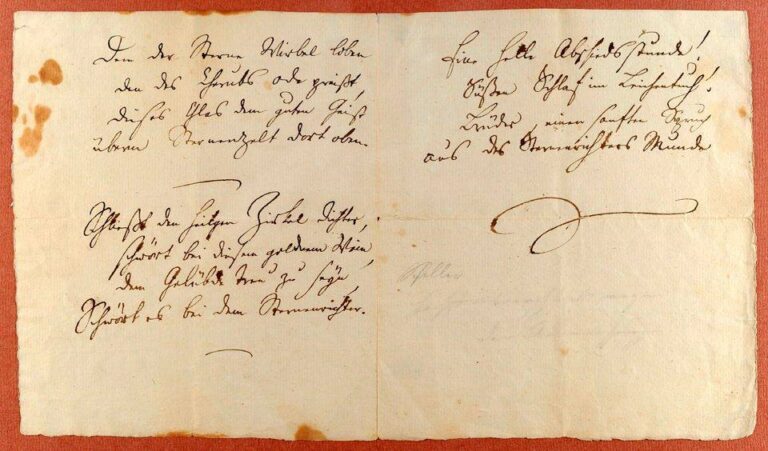 Dem der Sterne Wirbel loben
den des Cherubs ode preißt,
dieses Glas dem guten Geist
überm Sternenzelt dort oben.
Schließt den heilgen Zirkel dichter,
schwört bei diesem goldnem Wein,
dem Gelübde treu zu seyn,
Schwört es bei dem Sternenrichter.
Eine helle Abschiedsstunde!
Süßen Schlaf im Leichentuch!
Brüder, einen sanften Spruch
aus des Sternenrichters Munde
Schiller